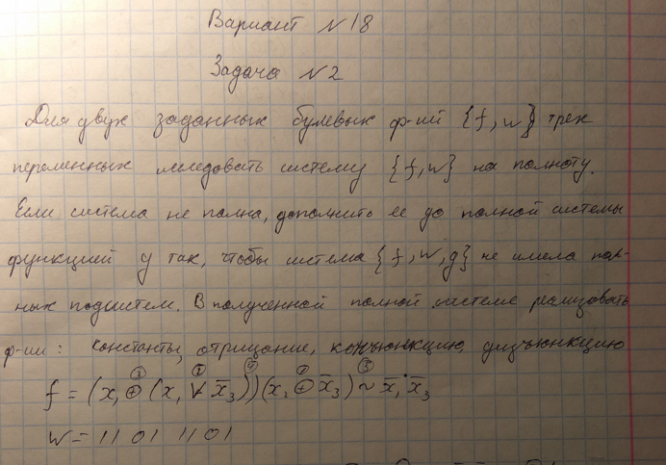 Вариант №18
Задача №2
Для двух заданных булевых ф-ий {f, w} трех
переменных исследовать систему {f, w} на полноту.
Если система не полна, дополнить ее до полной системы
функцией g так, чтобы система {f, w, g} не имела пол-
ных подсистем. В полученной полной системе реализовать
ф-ии: константы, отрицание, конъюнкцию, дизъюнкцию
f = (x₁ ⊕ (x₁ ∨ x̄₃))(x₂ ⊕ x̄₃) ~ x̄₁·x̄₃
w = 1101 1101